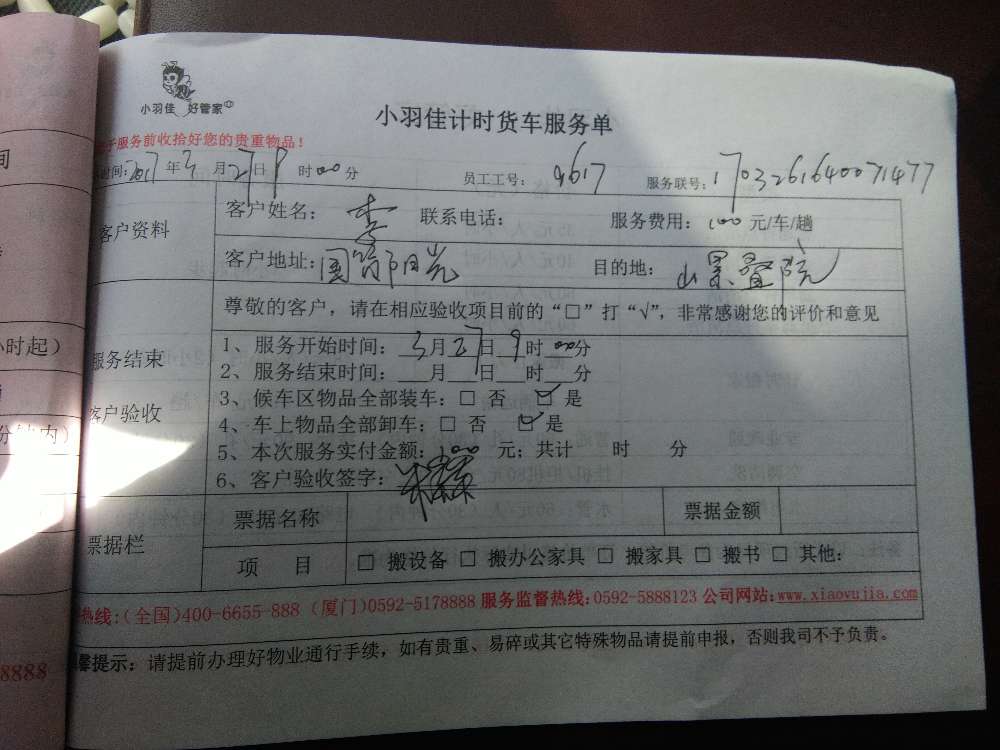 小羽佳 好管家
小羽佳计时货车服务单
服务前收拾好您的贵重物品！
时间：2017年3月27日9时00分 员工工号：9617 服务联号：1703261640071477
客户资料
客户姓名：李 联系电话： 服务费用：100元/车/趟
客户地址：国贸阳光 目的地：
尊敬的客户，请在相应验收项目前的“□”打“√”，非常感谢您的评价和意见
服务结束
客户验收
1、服务开始时间：3月27日9时00分
2、服务结束时间：___月___日___时___分
3、候车区物品全部装车：□ 否 ☑ 是
4、车上物品全部卸车：□ 否 ☑ 是
5、本次服务实付金额：100 元；共计 时 分
6、客户验收签字：
票据栏
票据名称 票据金额
项 目 □ 搬设备 □ 搬办公家具 □ 搬家具 □ 搬书 □ 其他：
热线：（全国）400-6655-888（厦门）0592-5178888 服务监督热线：0592-5888123 公司网站：www.xiaoyujia.com
馨提示：请提前办理好物业通行手续，如有贵重、易碎或其它特殊物品请提前申报，否则我司不予负责。
间
小时起）
分钟内）
8888